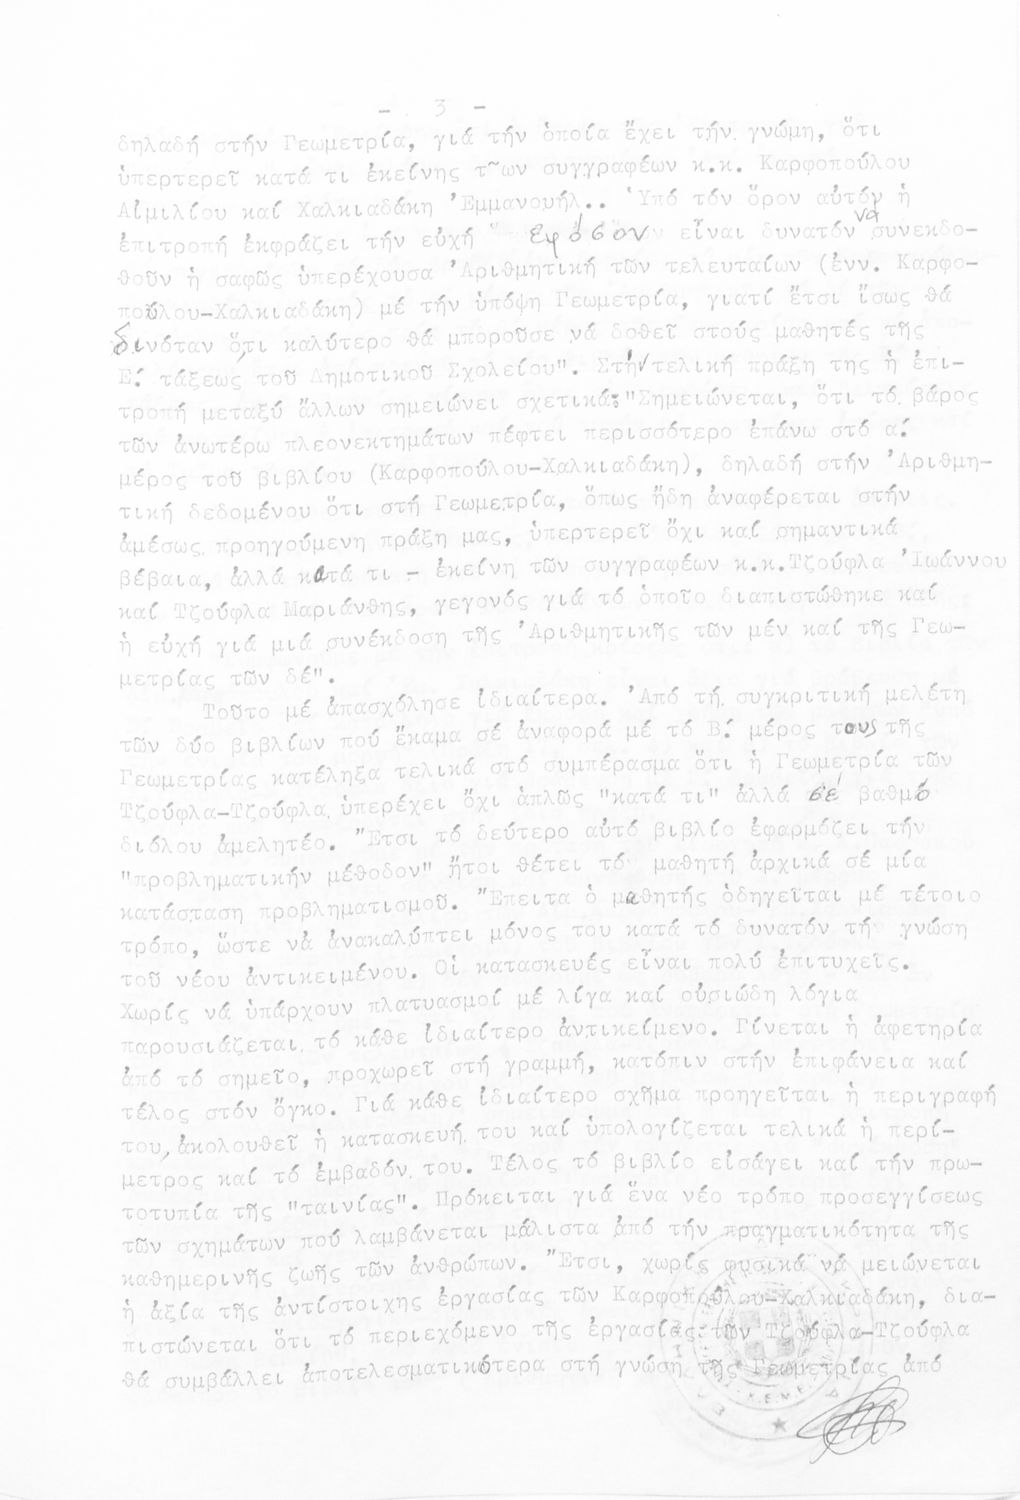 - 3 -
δηλαδή στήν Γεωμετρία, γιά τήν ὁποία ἔχει τήν γνώμη, ὅτι
ὑπερτερεῖ κατά τι ἐκείνης τ~ων συγγραφέων κ.κ. Καρφοπούλου
Αἰμιλίου καί Χαλκιαδάκη 'Εμμανουήλ.. Ὑπό τόν ὅρον αὐτόν ἡ
ἐπιτροπή ἐκφράζει τήν εὐχή ἐφόσον εἶναι δυνατόν νά συνεκδο-
θοῦν ἡ σαφῶς ὑπερέχουσα 'Αριθμητική τῶν τελευταίων (ἐνν. Καρφο-
πούλου-Χαλκιαδάκη) μέ τήν ὑπόψη Γεωμετρία, γιατί ἔτσι ἴσως θά
δινόταν ὅ,τι καλύτερο θά μποροῦσε νά δοθεῖ στούς μαθητές τῆς
Ε΄. τάξεως τοῦ Δημοτικοῦ Σχολείου". Στήν τελική πράξη της ἡ ἐπι-
τροπή μεταξύ ἄλλων σημειώνει σχετικά: "Σημειώνεται, ὅτι τό βάρος
τῶν ἀνωτέρω πλεονεκτημάτων πέφτει περισσότερο ἐπάνω στό α΄.
μέρος τοῦ βιβλίου (Καρφοπούλου-Χαλκιαδάκη), δηλαδή στήν 'Αριθμη-
τική δεδομένου ὅτι στή Γεωμετρία, ὅπως ἤδη ἀναφέρεται στήν
ἀμέσως προηγούμενη πράξη μας, ὑπερτερεῖ ὄχι καί σημαντικά
βέβαια, ἀλλά κατά τι - ἐκείνη τῶν συγγραφέων κ.κ.Τζούφλα 'Ιωάννου
καί Τζούφλα Μαριάνθης, γεγονός γιά τό ὁποῖο διαπιστώθηκε καί
ἡ εὐχή γιά μιά συνέκδοση τῆς 'Αριθμητικῆς τῶν μέν καί τῆς Γεω-
μετρίας τῶν δέ".
Τοῦτο μέ ἀπασχόλησε ἰδιαίτερα. 'Από τή συγκριτική μελέτη
τῶν δύο βιβλίων πού ἔκαμα σέ ἀναφορά μέ τό Β΄. μέρος τους τῆς
Γεωμετρίας κατέληξα τελικά στό συμπέρασμα ὅτι ἡ Γεωμετρία τῶν
Τζούφλα-Τζούφλα ὑπερέχει ὄχι ἁπλῶς "κατά τι" ἀλλά σέ βαθμό
διόλου ἀμελητέο. Ἔτσι τό δεύτερο αὐτό βιβλίο ἐφαρμόζει τήν
"προβληματικήν μέθοδον" ἤτοι θέτει τό μαθητή ἀρχικά σέ μία
κατάσταση προβληματισμοῦ. Ἔπειτα ὁ μαθητής ὁδηγεῖται μέ τέτοιο
τρόπο, ὥστε νά ἀνακαλύπτει μόνος του κατά τό δυνατόν τή γνώση
τοῦ νέου ἀντικειμένου. Οἱ κατασκευές εἶναι πολύ ἐπιτυχεῖς.
Χωρίς νά ὑπάρχουν πλατυασμοί μέ λίγα καί οὐσιώδη λόγια
παρουσιάζεται τό κάθε ἰδιαίτερο ἀντικείμενο. Γίνεται ἡ ἀφετηρία
ἀπό τό σημεῖο, προχωρεῖ στή γραμμή, κατόπιν στήν ἐπιφάνεια καί
τέλος στόν ὄγκο. Γιά κάθε ἰδιαίτερο σχῆμα προηγεῖται ἡ περιγραφή
του, ἀκολουθεῖ ἡ κατασκευή του καί ὑπολογίζεται τελικά ἡ περί-
μετρος καί τό ἐμβαδόν του. Τέλος τό βιβλίο εἰσάγει καί τήν πρω-
τοτυπία τῆς "ταινίας". Πρόκειται γιά ἕνα νέο τρόπο προσεγγίσεως
τῶν σχημάτων πού λαμβάνεται μάλιστα ἀπό τήν πραγματικότητα τῆς
καθημερινῆς ζωῆς τῶν ἀνθρώπων. Ἔτσι, χωρίς φυσικά νά μειώνεται
ἡ ἀξία τῆς ἀντίστοιχης ἐργασίας τῶν Καρφοπούλου-Χαλκιαδάκη, δια-
πιστώνεται ὅτι τό περιεχόμενο τῆς ἐργασίας τῶν Τζούφλα-Τζούφλα
θά συμβάλλει ἀποτελεσματικότερα στή γνώση τῆς Γεωμετρίας ἀπό